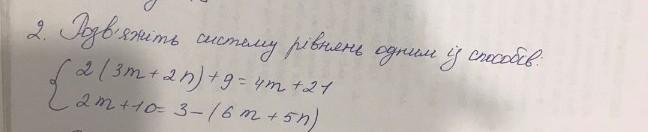 2. Розв'яжіть систему рівнянь одним із способів:
2(3m+2n)+9=4m+21
2m+10=3-(6m+5n)